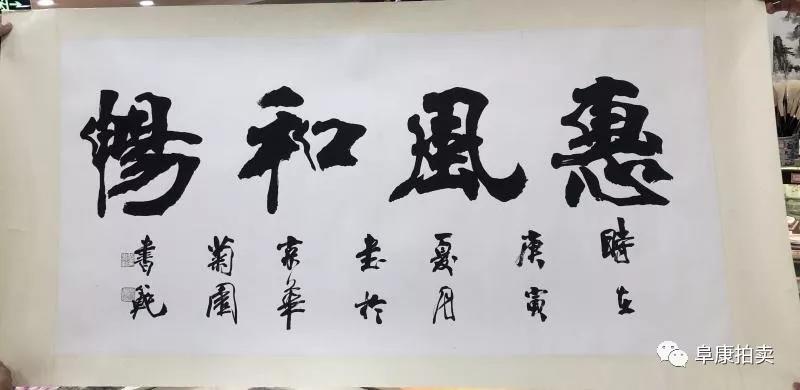 惠風和暢
時在
庚寅
夏月
書於
京華
菊園
書
阜康拍卖